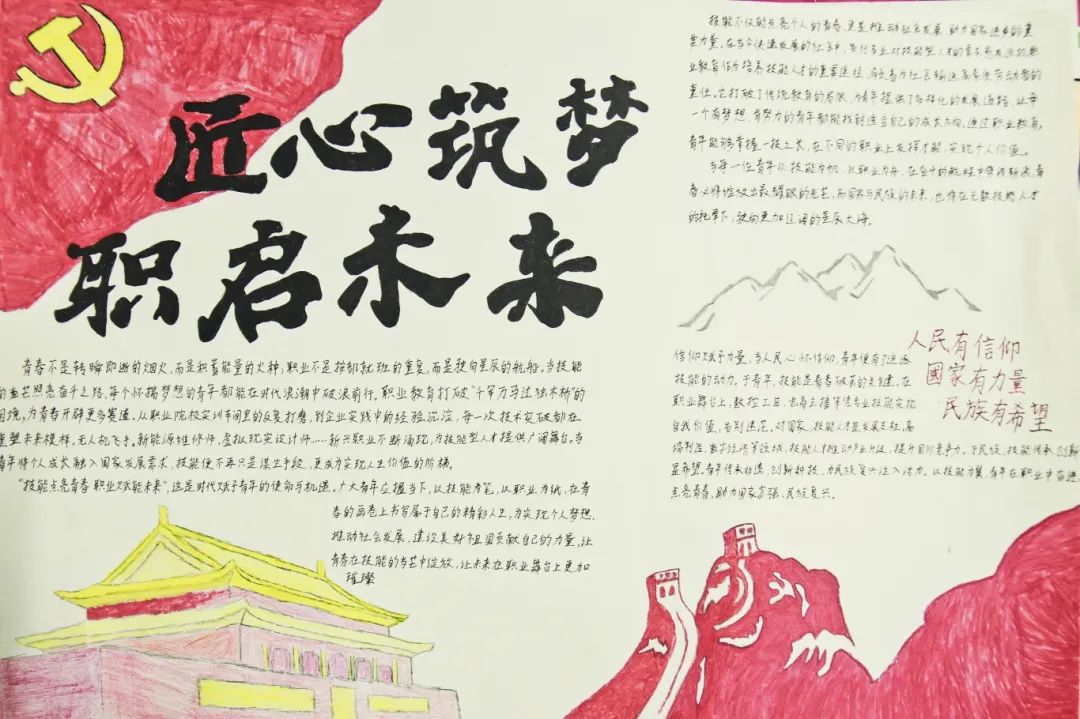 匠心筑梦
职启未来
技能不仅能点亮个人的青春,更是推动社会发展、助力国家进步的重
要力量。在当今快速发展的社会中,各行各业对技能型人才的需求愈发迫切,职
业教育作为培养技能人才的重要途径,肩负着为社会输送高素质劳动者的
重任。它打破了传统教育的局限,为青年提供了多样化的发展道路,让每
一个有梦想、有努力的青年都能找到适合自己的成长方向,通过职业教育,
青年能够掌握一技之长,在不同的职业上发挥才能,实现个人价值。
当每一位青年以技能为帆,以职业为舟,在奋斗的航程中乘风破浪,青
春必将绽放出最耀眼的光芒,而国家与民族的未来,也将在无数技能人才
的托举下,驶向更加辽阔的星辰大海。
青春不是转瞬即逝的烟火,而是积蓄能量的火种,职业不是按部就班的重复,而是驶向星辰的航船。当技能
的光芒照亮奋斗之路,每个怀揣梦想的青年都能在时代浪潮中破浪前行。职业教育打破"千军万马过独木桥"的
困境,为青春开辟更多赛道。从职业院校实训车间里的反复打磨,到企业实践中的经验沉淀,每一次技术突破都在
重塑未来模样。无人机飞手,新能源维修师,虚拟现实设计师……新兴职业不断涌现,为技能型人才提供广阔舞台。当
青年将个人成长融入国家发展需求,技能便不再只是谋生手段,更成为实现人生价值的阶梯。
"技能点亮青春 职业赋能未来",这是时代赋予青年的使命与机遇。广大青年应握当下,以技能为笔,以职业为纸,在青
春的画卷上书写属于自己的精彩人生,为实现个人梦想、
推动社会发展、建设美好祖国贡献自己的力量,让
青春在技能的光芒中绽放,让未来在职业舞台上更加
璀璨
人民有信仰
國家有力量
民族有希望
信仰赋予力量,当人民心怀信仰,青年便有了追逐
技能的动力。于青年,技能是青春破茧的关键,在
职业舞台上,数控工匠、电商主播等凭专业技能实现
自我价值,告别迷茫。对国家,技能人才是发展支柱,高
端制造、数字经济等领域,技能人才推动产业升级,提升国际竞争力。于民族,技能传承创新
显希望。青年传承非遗、创新科技,为民族复兴注入活力。以技能为翼,青年在职业中奋进,
点亮青春,助力国家富强、民族复兴。